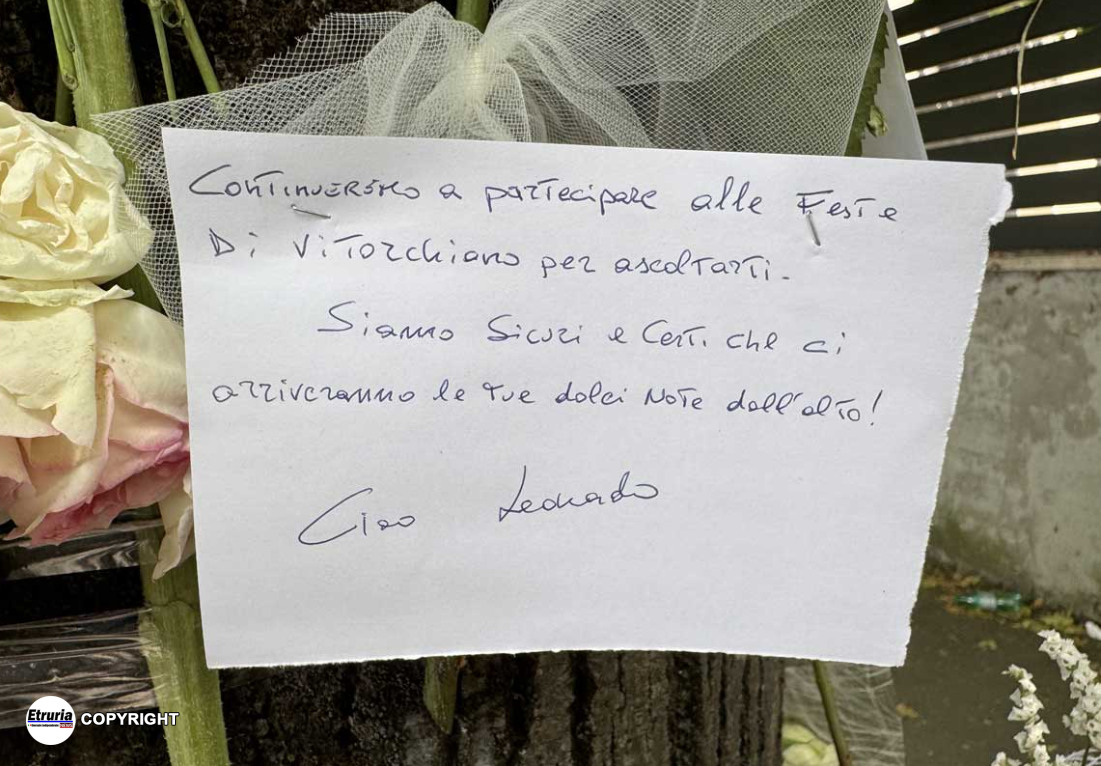 Continueremo a partecipare alle Feste
Di Vitorchiano per ascoltarti.
Siamo Sicuri e Certi che ci
arriveranno le tue dolci Note dall'alto!
Ciao Leonardo
Etruria COPYRIGHT